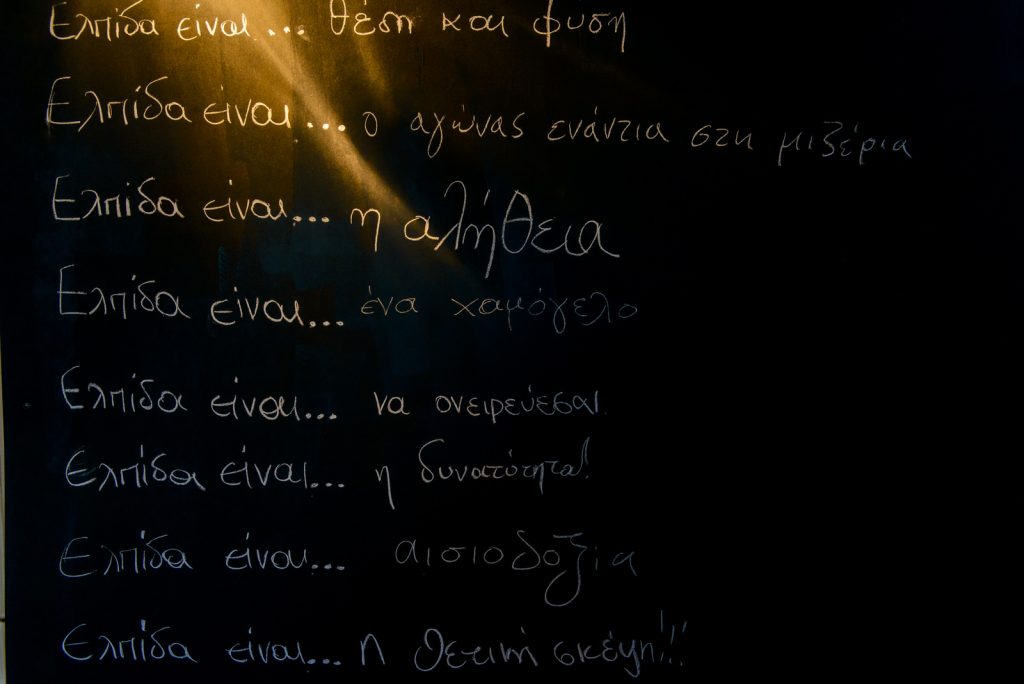 Ελπίδα είναι... θέση και φύση
Ελπίδα είναι... ο αγώνας ενάντια στη μιζέρια
Ελπίδα είναι... η αλήθεια
Ελπίδα είναι... ένα χαμόγελο
Ελπίδα είναι... να ονειρεύεσαι
Ελπίδα είναι... η δυνατότητα!
Ελπίδα είναι... αισιοδοξία
Ελπίδα είναι... η θετική σκέψη!!!